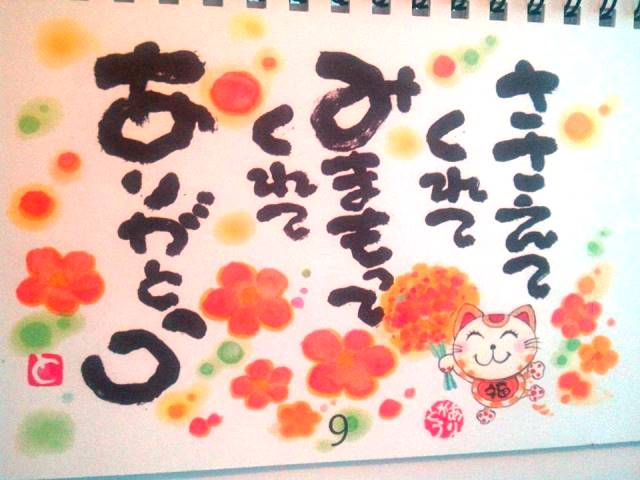 ささえて
くれて
みまもって
くれて
ありがとう
福
9